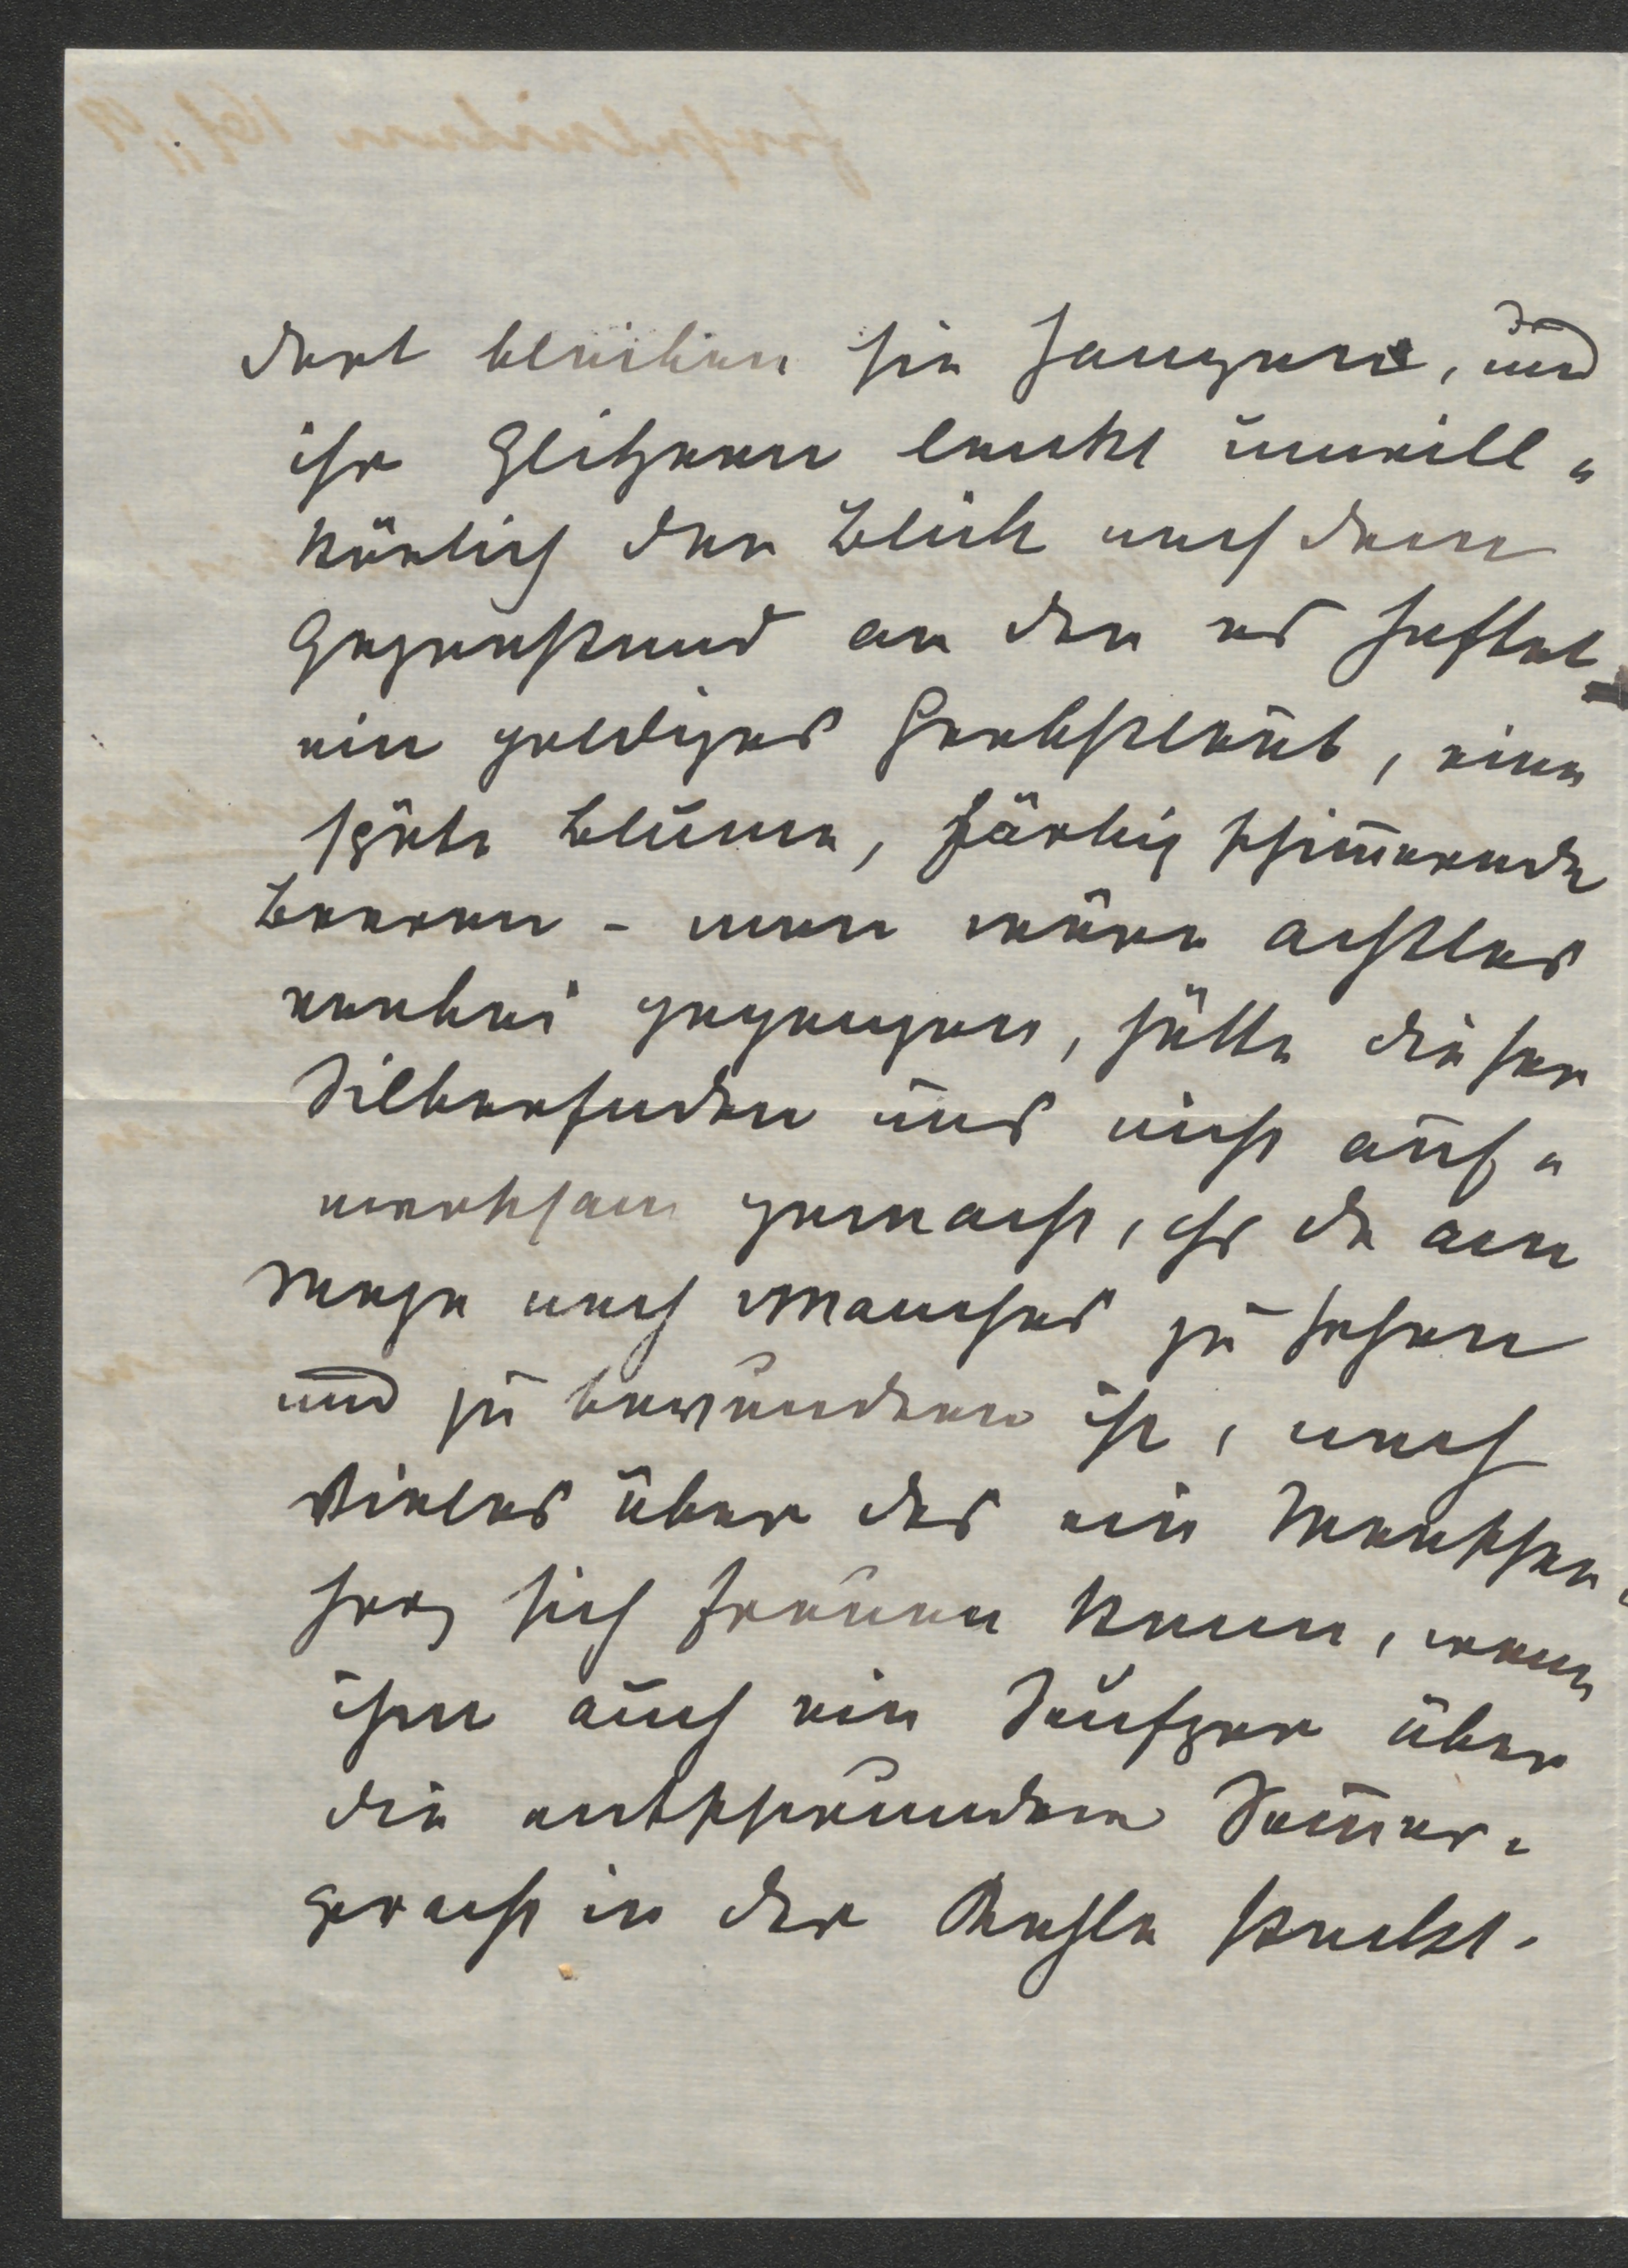 dort bleiben sie hangen, und
ihr Glitzern lenkt unwill-
kürlich den Blick nach dem
Gegenstand an den es heftet
ein goldiges Herbstlaub, eine
späte Blume, färbig schim̅ernde
Beeren - man wäre achtlos
vorbei gegangen, hätte dieser
Silberfaden uns nicht auf-
merksam gemacht, daß da am
Wege noch Manches zu sehen
und zu bewundern ist, noch
Vieles über das ein Menschen-
herz sich freuen kann, wenn
ihm auch ein Seufzer über
die entschwundene Som̅er-
pracht in der Kehle steckt.